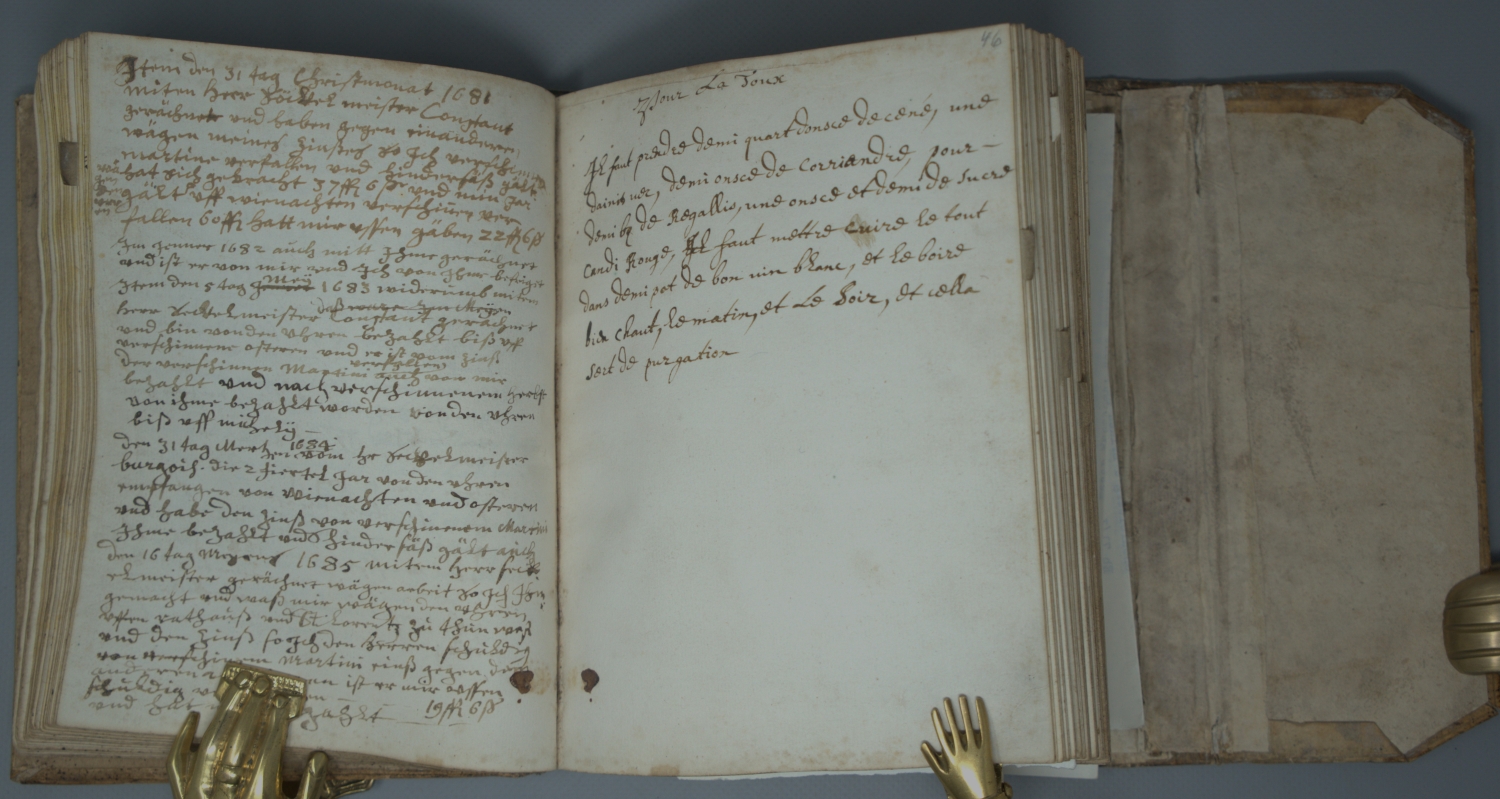 Item den 31 tag Christmonat 1681
miten Herr Seckelmeister Constant
gerächnet vnd haben gegen einanderen
wägen meines zinses so Ich verschinen
Martine verfallen vnd hindersäß gält
hat sich gebracht 37 ffl 6 ß vnd nun Jar
gält vff wienachten verschinen ver
fallen 60 ffl hatt mir vssen gäben 22 ffl 6 ß
Im Jenner 1682 auch mitt Ihme gerächnet
vnd ist er von mir vnd Ich von Ihme
Item den 5 tag Meÿ 1683 widerumb mitem
herr Seckelmeister Constant gerächnet
vnd bin von den vhren bezahlt biß vff
verschinnene osteren vnd er ist vom zinß
der verschinnen Martini von mir
bezahlt vnd nach verschinnenem herbst
von ihme bezahlt worden von den vhren
biß vff
den 31 tag Mertzen 1684 vom hr Seckelmeister
die 2 fiertel Jar von den vhren
empfangen von wienachten vnd osteren
vnd habe den zinß von verschinenem Martini
Ihme bezahlt vnd hindersäß gält auch
den 16 tag Meyens 1685 mitem herr seck
elmeister gerächnet wägen arbeit so Ich Ihm
gemacht vnd waß mir wägen den vhren
vffem rathauß vnd St Lorentz zu thun waß
vnd den zinß so Ich den herren schuldig
von verschinem Martini einß gegen dem
anderen ist er mir vssen
schuldig
vnd hat bezahlt 19 ffl 6 ß
46
Pour La Toux
Il faut prendre demi quart donsce de cené, une
demi onsce de Corriandre, pour
demi bz de Regallis, une onsce et demi de sucre
Candi Rouge, Il faut mettre Cuire le tout
dans demi pot de bon vin blanc, et le boire
bien chaut, le matin, et Le Soir, et cella
sert de purgation